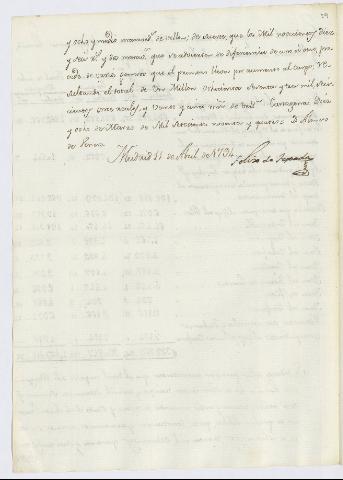 29
y ocho y medio maravedis de vellon; de suerte, que los Mil novecientos diez
y seis r.s y dos maraved.s que se advierte de diferencia de uno à otro, pro
cede de varias partidas que el primero dexó por aumentar al cargo, re
sultando el total de dos Millones ochocientos setenta y tres mil, seis
cientos once reales, y veinte y cinco mrs de vellon. Cartagena Diez
y ocho de Marzo de Mil Setecientos noventa y quatro. D. Alonso
de
Madrid 11 de Abril de 1794.
Felix de Tejada